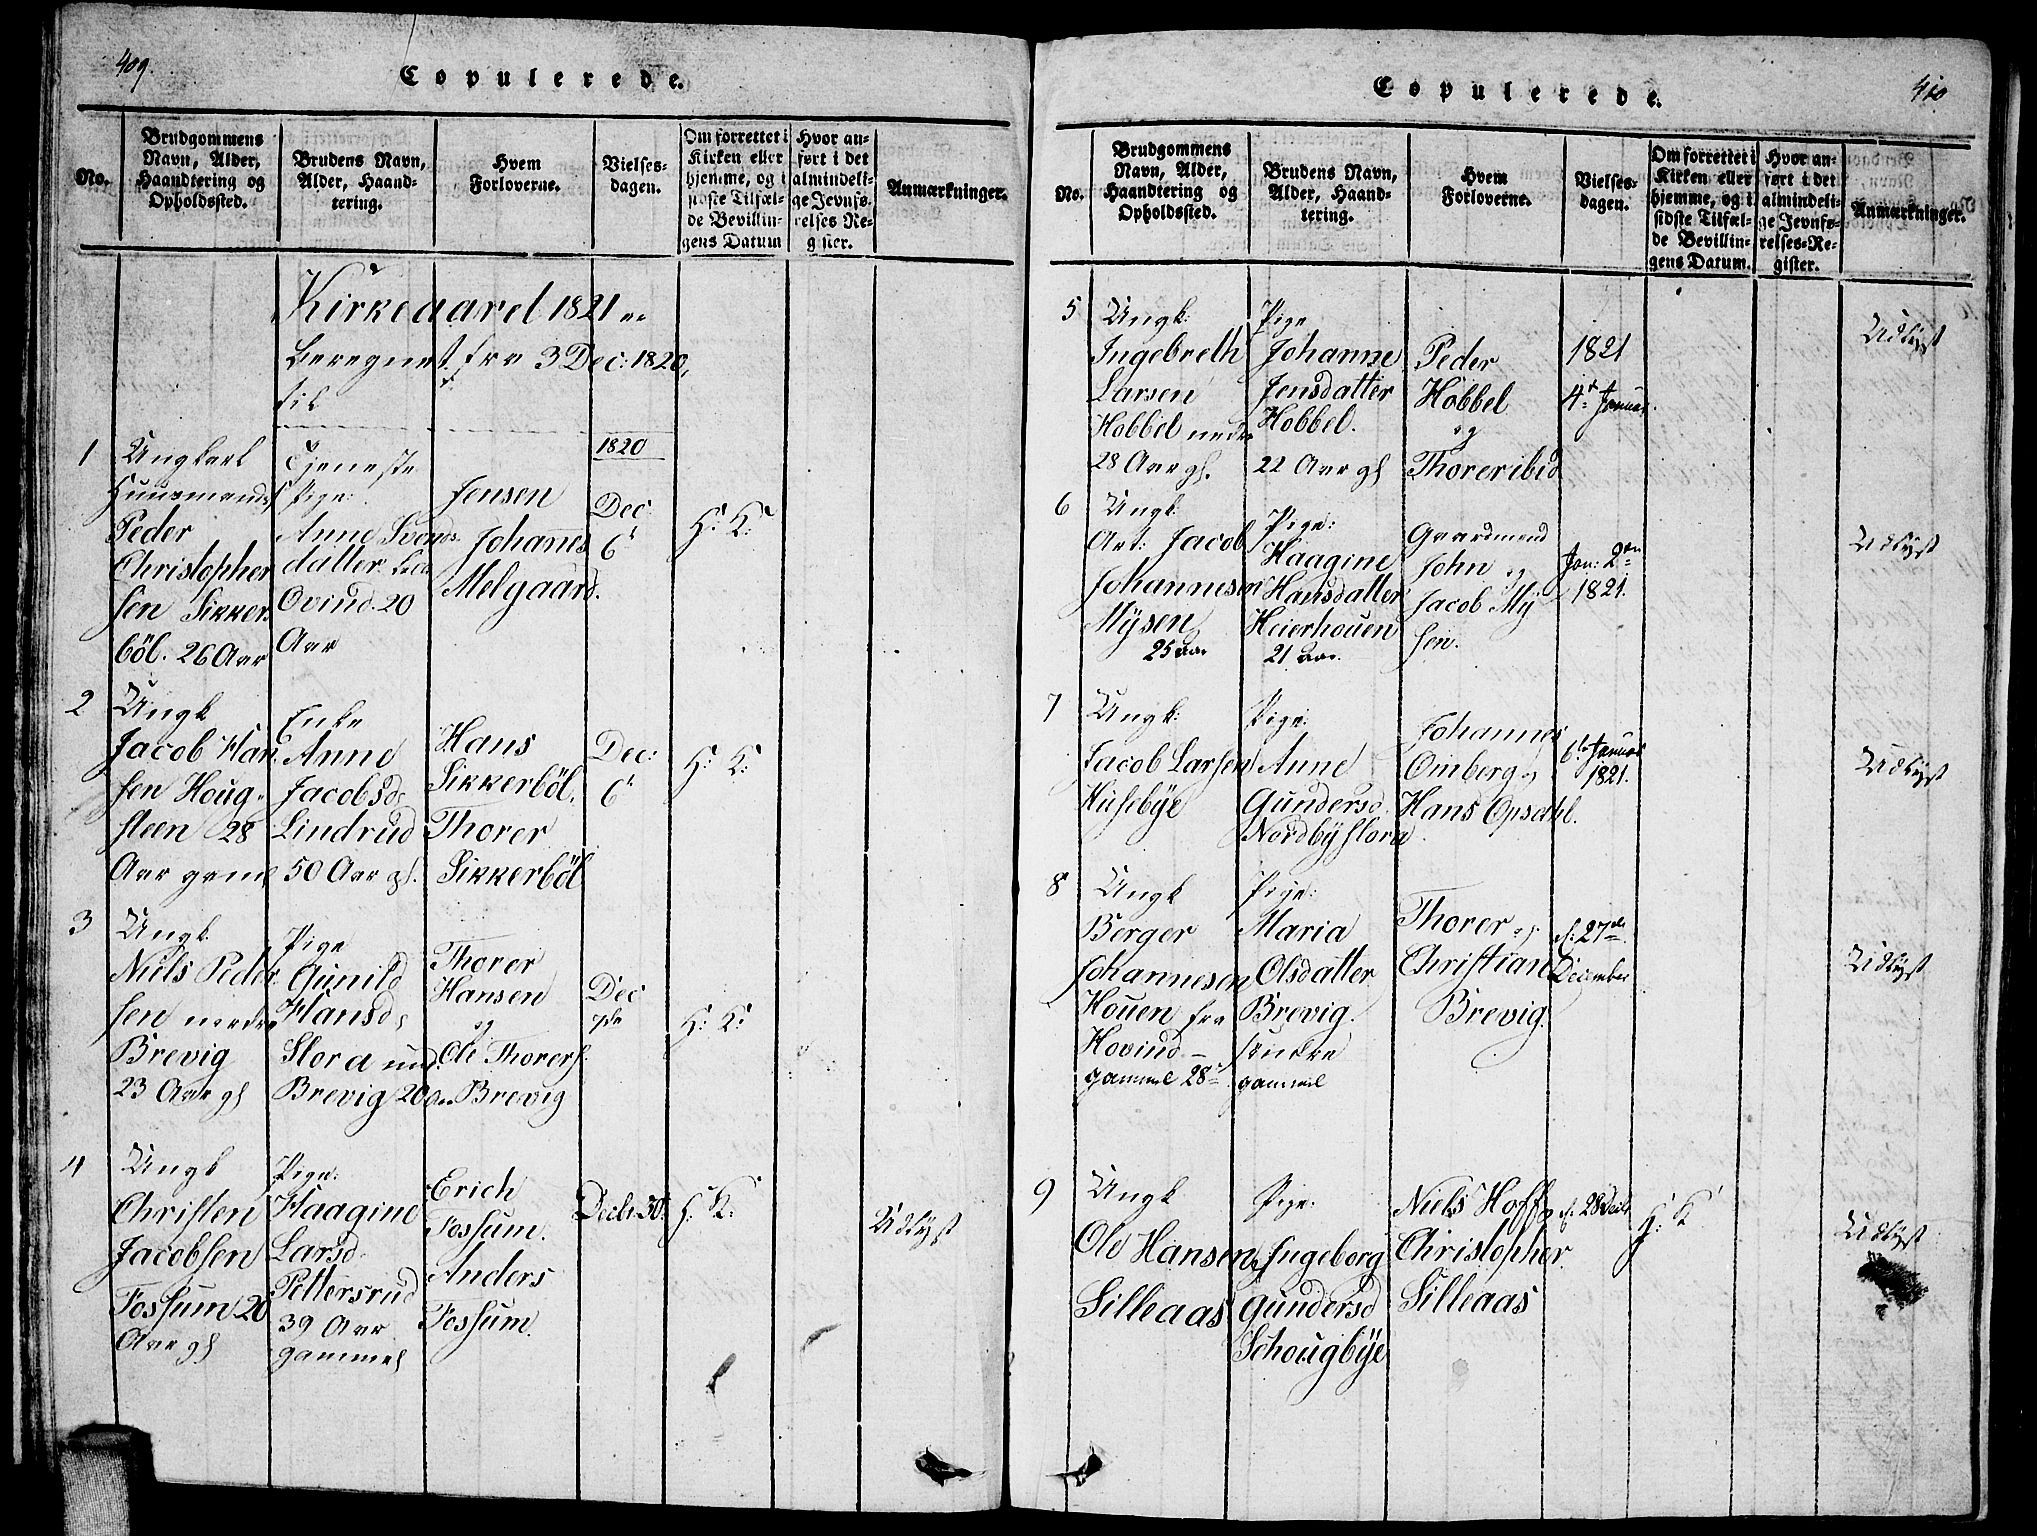 409.
Copulerede.
No.
Brudgommens
Navn, Alder,
Haandtering og
Opholdssted.
Brudens Navn,
Alder, Haand-
tering.
Hvem
Forloverne.
Vielses-
dagen.
Om forrettet i
Kirken eller
hjemme, og i
sidste Tilfæl-
de Bevillin-
gens Datum
Hvor an-
ført i det
almindeli-
ge Jevnfø-
relses Re-
gister.
Anmærkninger.
Kirkeaaret 1821
beregnet fra 3 Dec: 1820,
til
1820
1
Ungkarl
Huusmand
Peder
Christopher
sen Sikker
böl. 26 Aar
Tjeneste
Pige:
Anne Svends
datter
Ovind. 20
Aar
Jensen
Johannes
Melgaard.
Dec:
6t
H: K:
2
Ungk
Jacob Han
sen Houg-
steen 28
Aar gaml
Enke
Anne
Jacobsd
Lindrud
50 Aar gl.
Hans
Sikkerböl,
Thorer
Sikkerböl
Dec:
6t
H: K:
3
Ungk.
Niels Peder
sen nordre
Brevig
23 Aar gl
Pige
Gunild
Hansd
Slora und
Brevig 20
Thorer
Hansen
og
Ole Thorers.
Brevig
Dec
7de
H: K:
4
Ungk
Christen
Jacobsen
Fossum 20
Aar gl
Pige:
Haagine
Larsd
Pettersrud
39 Aar
gammel
Erich
Fossum.
Anders
Fossum.
Decb: 30:
H: K:
Udlyst
410
Copulerede.
No.
Brudgommens
Navn, Alder,
Haandtering og
Opholdssted.
Brudens Navn,
Alder, Haand-
tering.
Hvem
Forloverne.
Vielses-
dagen.
Om forrettet i
Kirken eller
hjemme, og i
sidste Tilfæl-
de Bevillin-
gens Datum.
Hvor an-
ført i det
almindeli-
ge Jevnfø-
relses-Re-
gister.
Anmærkninger.
5
Ungk:
Ingebreth
Larsen
Hobbel nedre
28 Aar gl.
Pige
Johanne
Jensdatter
Hobbel.
22 Aar gl
Peder
Hobbel
og
Thorer ibid
1821
4de Januar.
Udlyst
6
Ungk:
Art: Jacob
Johannesen
Mÿsen
25 Aar
Pige:
Haagine
Hansdatter
Heierhouen
21 Aar.
Gaardmend
John og
Jacob Mÿ
sen.
Jan: 2den
1821.
Udlyst
7
Ungk:
Jacob Larsen
Husebÿe
Pige:
Anne
Gundersd.
Nordbÿ slora
Johannes
Omberg og
Hans Opsahl.
6te Januar
1821.
Udlyst
8
Ungk
Berger
Johannesen
Houen fra
Hovind -
gammel 28
Pige:
Maria
Olsdatter
Brevig.
gammel
Thorer og
Christian
Brevig.
d: 27de
December
Udlyst
9
Ungk
Ole Hansen
Silleaas
Pige:
Ingeborg
Gundersd
Schougbÿe
Niels Hoff
Christopher
Silleaas
d: 28 Decbr
H: K
Udlyst